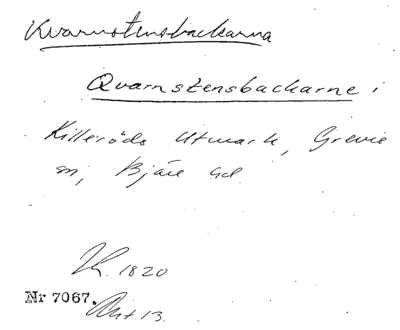 Kvarnstensbackarna
Qvarnstensbackarne i
Killeröds Utmark, Grevie
sn, Bjäre hd.
Lk. 1820
Nr 7067. Akt 13.